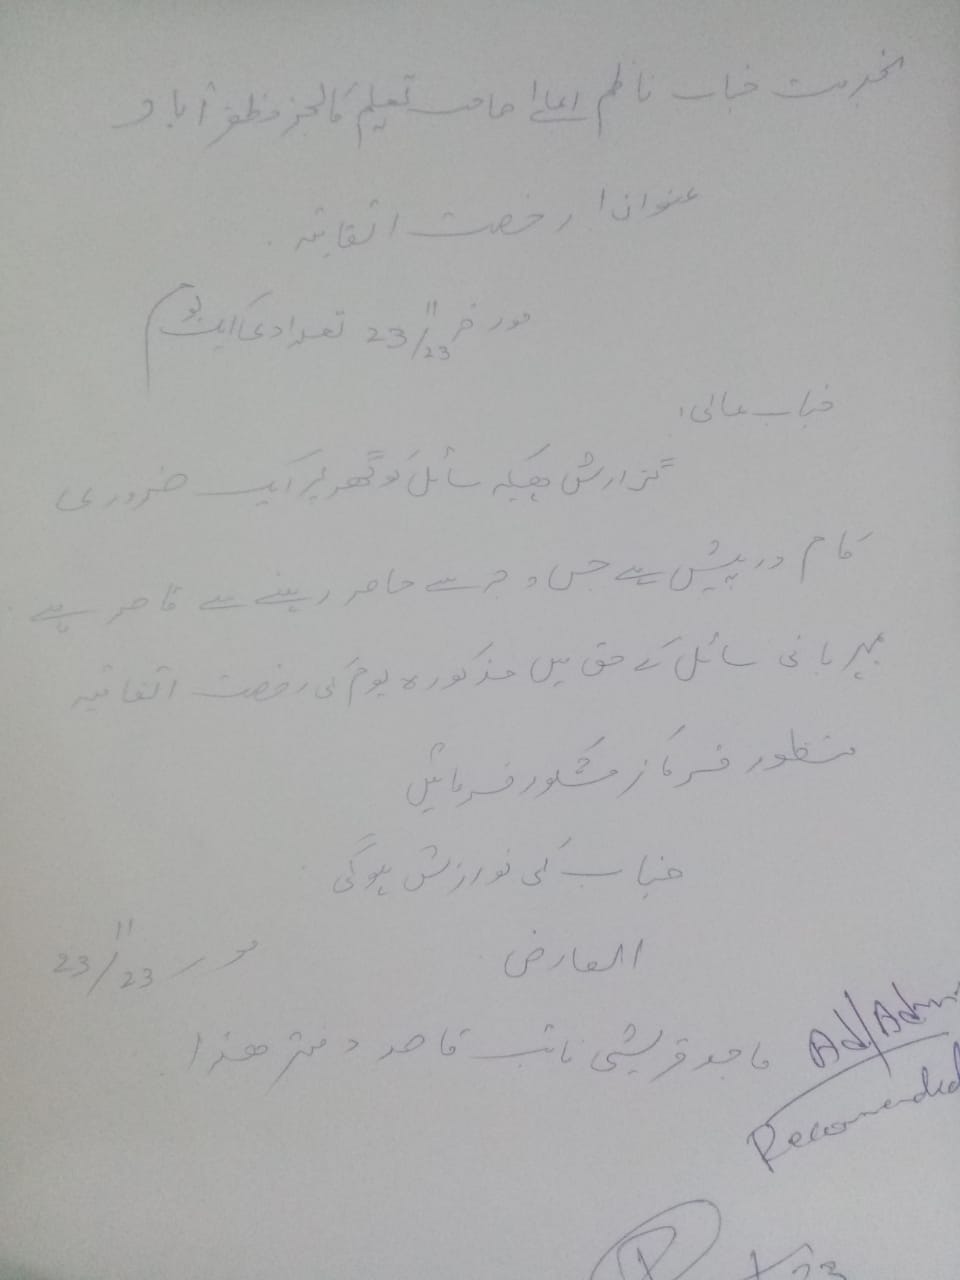 بخدمت جناب ناظم اعلیٰ صاحب تعلیم کالجز مظفر آباد
عنوان: رخصت اتفاقیہ
مورخہ 23/11/23 تعدادی ایک یوم
جناب عالی!
گزارش ہیکہ سائل کو گھر پر ایک ضروری
کام درپیش ہے جس وجہ سے حاضر رہنے سے قاصر ہے
مہربانی سائل کے حق میں مذکورہ یوم کی رخصت اتفاقیہ
منظور فرما کر مشکور فرمائیں
جناب کی نوازش ہوگی
العارض
مورخہ 23/11/23
ماجد قریشی نائب قاصد دفتر ھذا
Ad/Admn
Recommended